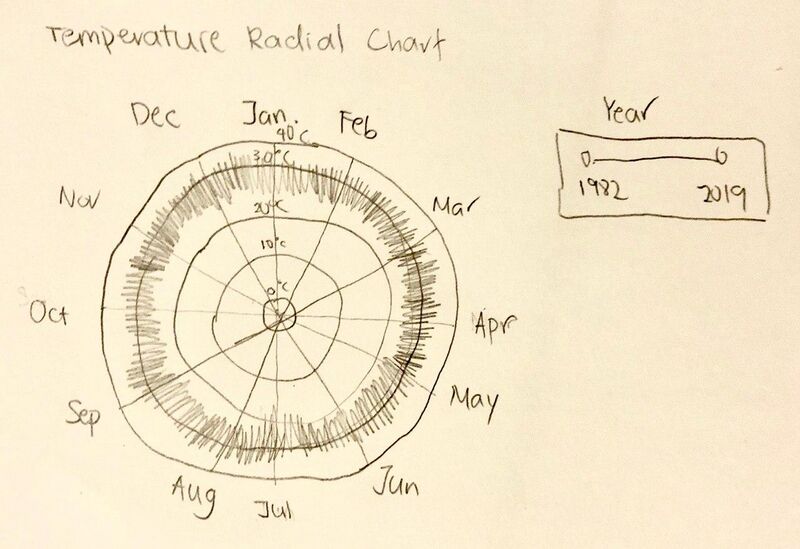 Temperature Radial Chart
Year
1982 2019
Dec Jan. Feb
40°C
30°C
Nov
Mar
20°C
10°C
0°C
Oct
Apr
May
Sep
Aug
Jun
Jul